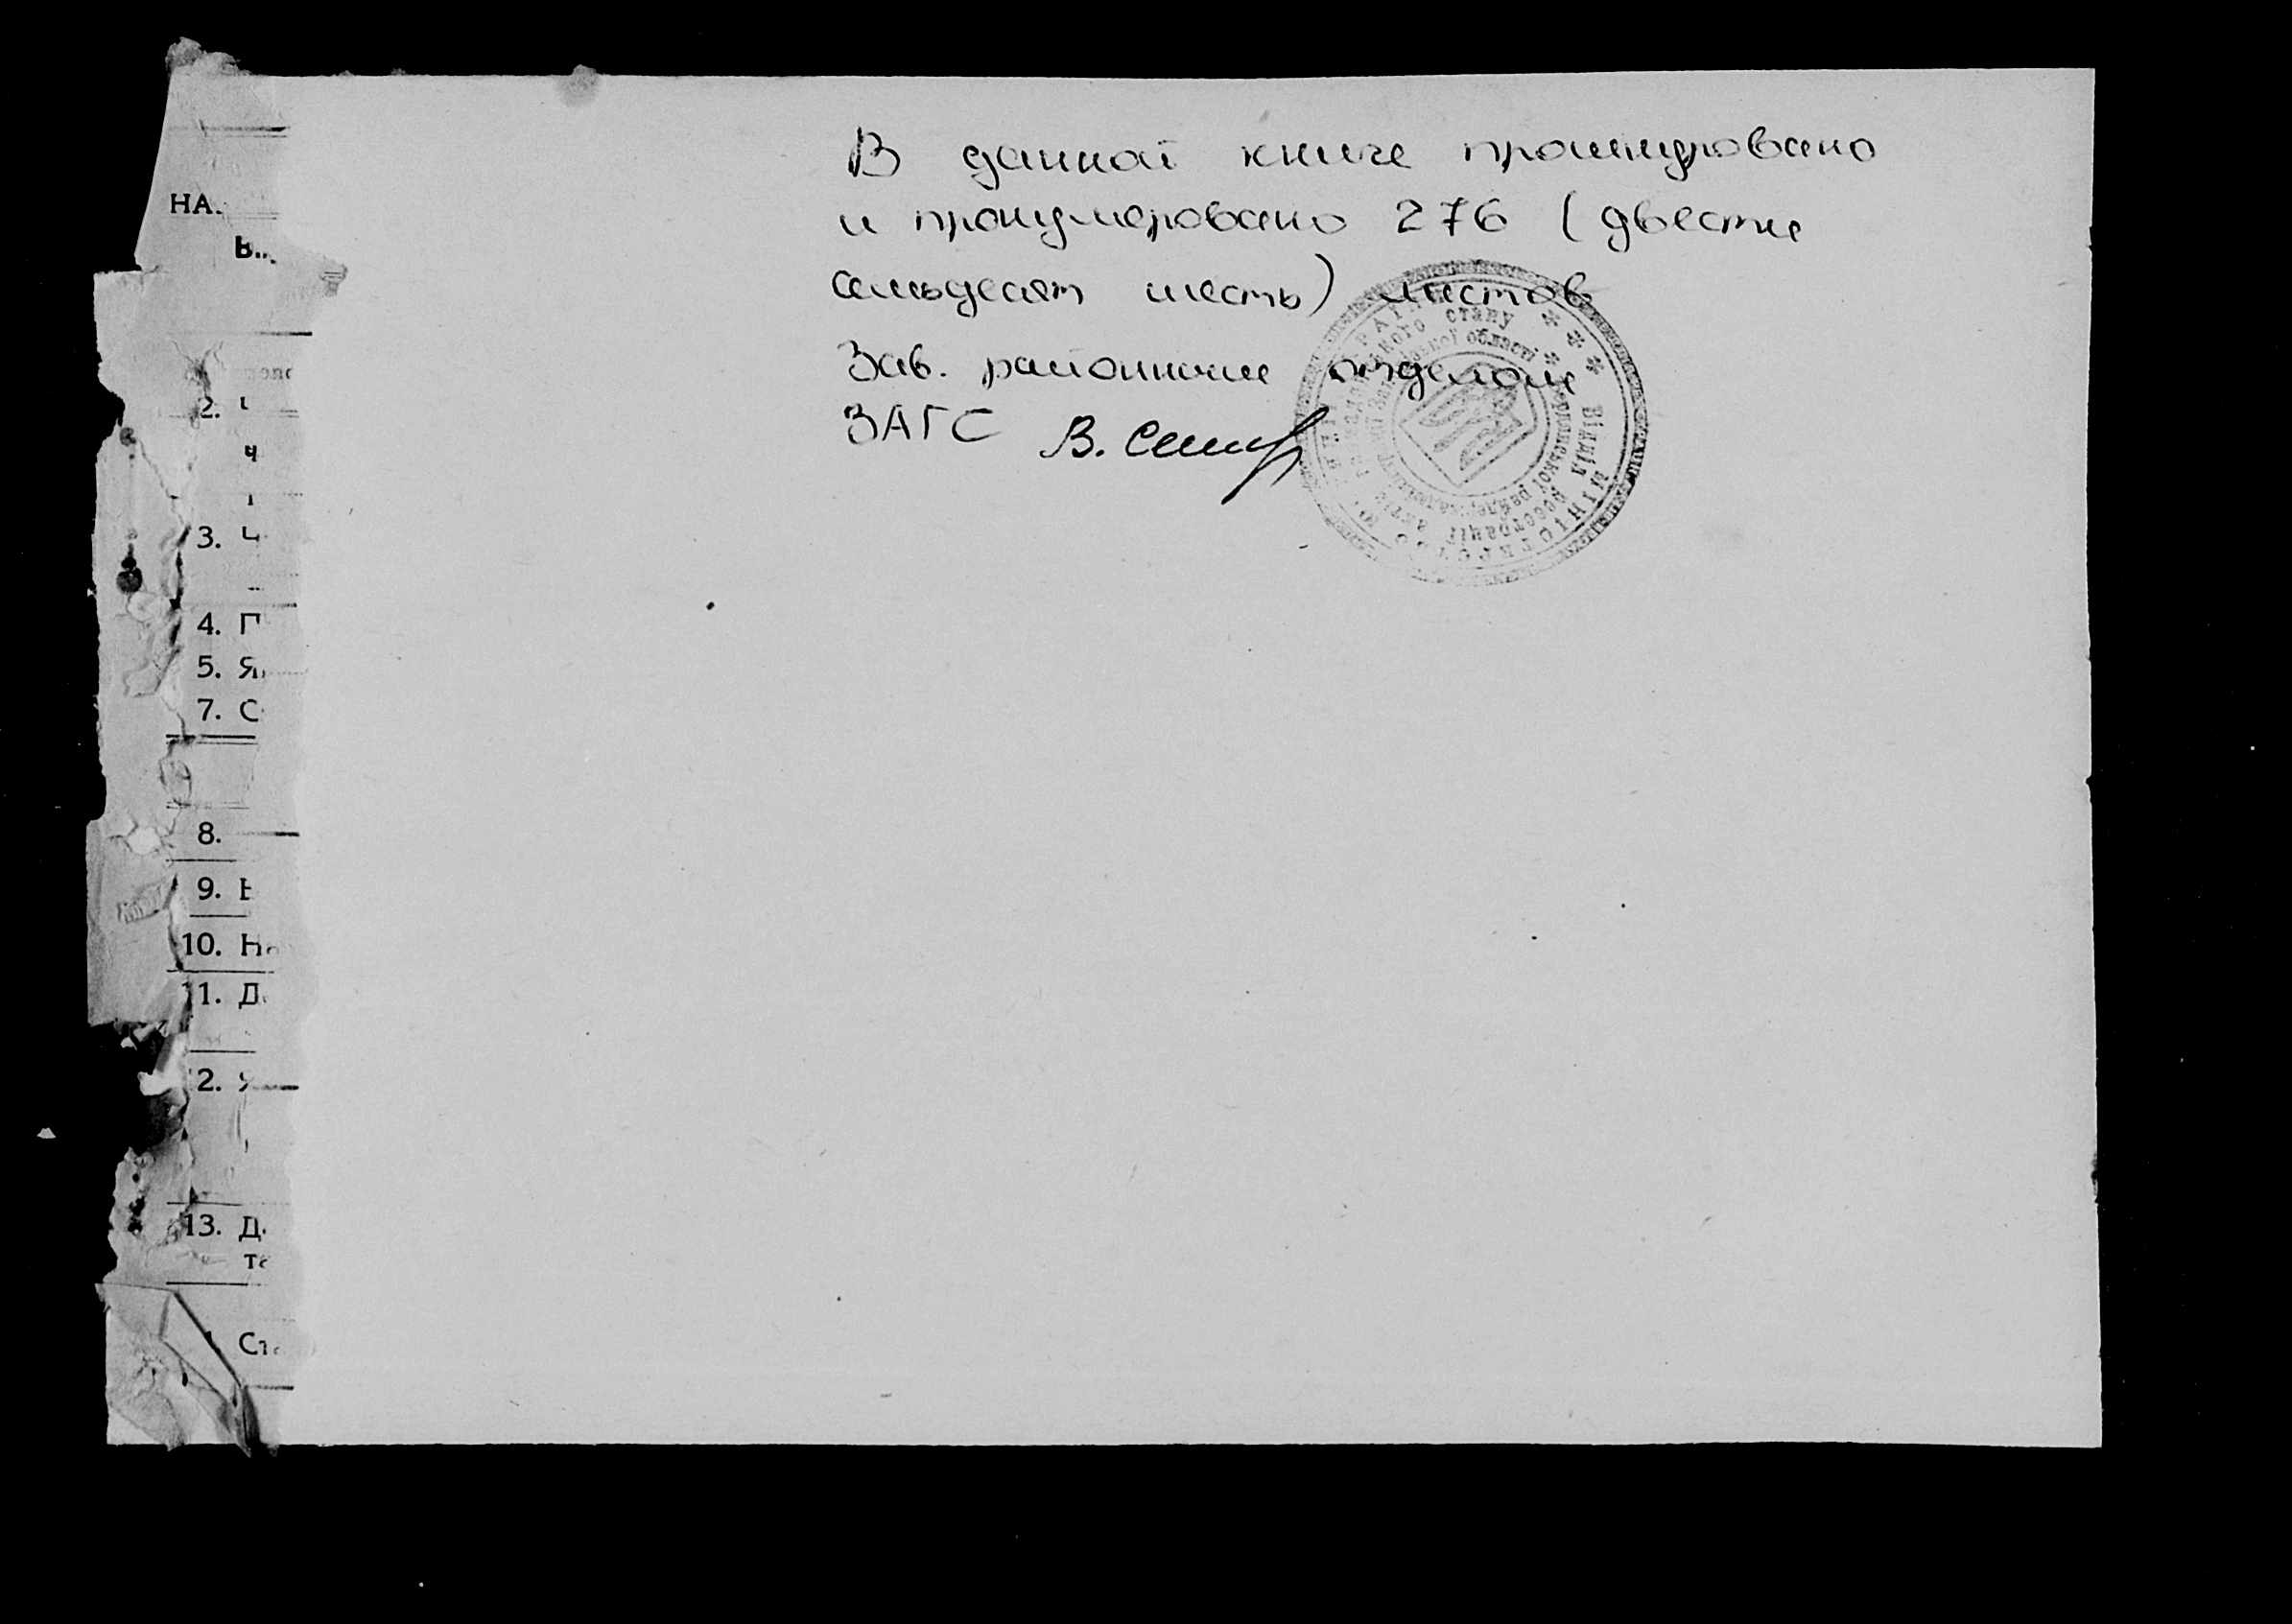 В данной книге прошнуровано
и пронумеровано 276 (двести
семьдесят шесть) листов
Зав. районным отделом
ЗАГС В.
стану
області
Відділ
реєстрації
НА
В
2. Ч
ч
3. Ч
4. П
5. Я
7. С
8.
9. В
10. На
11. Д
2. Я
13. Д
та
Ст